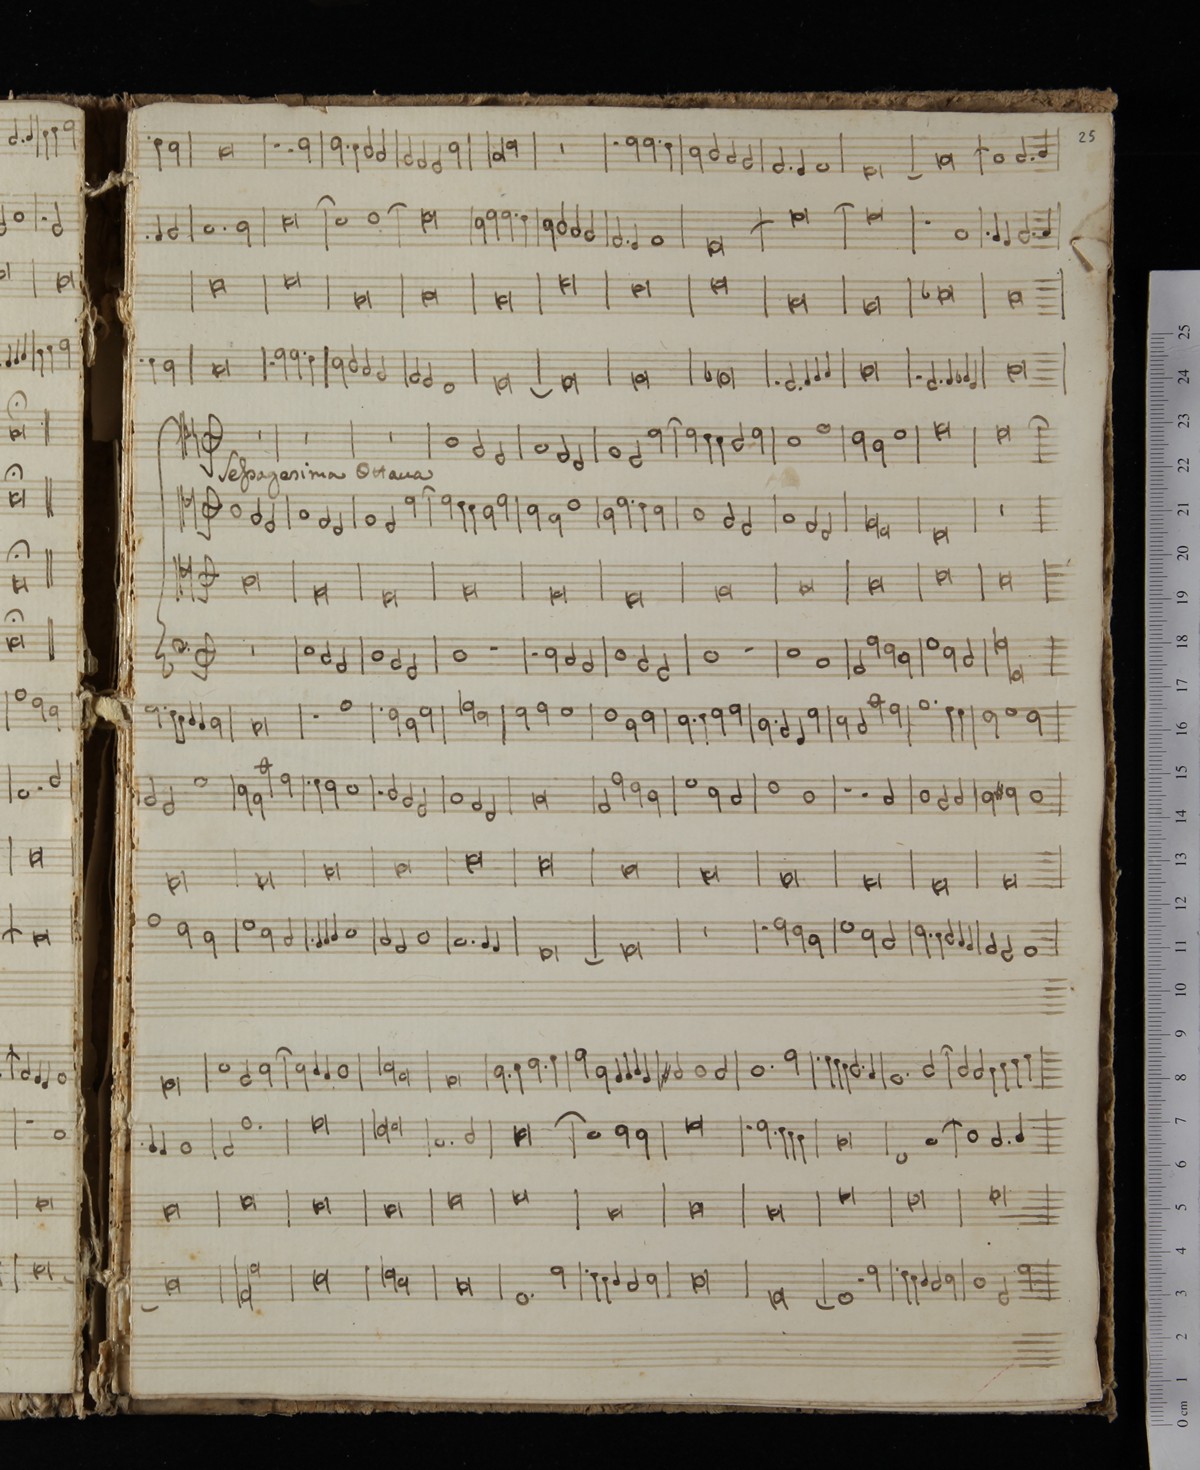 25
Sessagesima Ottaua
25
24
23
22
21
20
19
18
17
16
15
14
13
12
11
10
9
8
7
6
5
4
3
2
1
0 cm